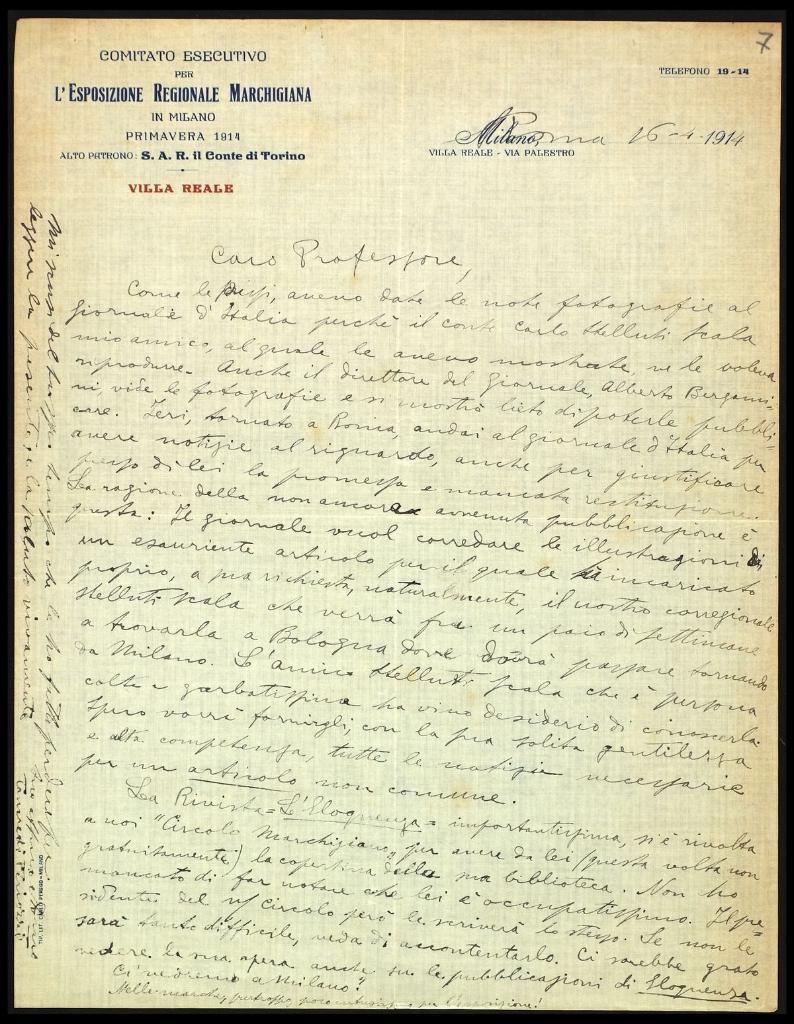 7
COMITATO ESECUTIVO
PER
L'ESPOSIZIONE REGIONALE MARCHIGIANA
IN MILANO
PRIMAVERA 1914
ALTO PATRONO: S. A. R. il Conte di Torino
VILLA REALE
TELEFONO 19-14
Milano, Roma 16-4-1914
VILLA REALE - VIA PALESTRO
Caro Professore,
Come le dissi, avevo date le note fotografie al
Giornale d'Italia perchè il conte Carlo Stelluti Scala
mio amico, al quale le avevo mostrate, ve le voleva
riprodurre. Anche il direttore del Giornale, Alberto Bergami-
ni, vide le fotografie e si mostrò lieto di poterle pubbli-
care. Ieri, tornato a Roma, andai al giornale d'Italia per
avere notizie al riguardo, anche per giustificare
presso di lei la promessa e mancata restituzione.
La ragione della non ancora avvenuta pubblicazione è
questa: Il giornale vuol corredare le illustrazioni di
un esauriente articolo per il quale ha incaricato
proprio, a sua richiesta, naturalmente, il nostro corregionale
Stelluti Scala che verrà fra un paio di settimane
a trovarla a Bologna dove dovrà passare tornando
da Milano. L'amico Stelluti Scala che è persona
colta e garbatissima ha vivo desiderio di conoscerla.
Spero vorrà fornirgli, con la sua solita gentilezza
e alta competenza, tutte le notizie necessarie
per un articolo non comune.
La Rivista = L'Eloquenza = importantissima, si è rivolta
a noi "Circolo Marchigiano" per avere da lei (questa volta non
gratuitamente) la copertina della sua biblioteca. Non ho
mancato di far notare che lei è occupatissimo. Il pre-
sidente del n/ Circolo però le scriverà lo stesso. Se non le
sarà tanto difficile, veda di accontentarlo. Ci sarebbe grato
vedere la sua opera anche su le pubblicazioni di Eloquenza.
Ci vedremo a Milano?
Nelle marche, purtroppo, poco per l'esposizione!
Mi scusi del tempo che le ho fatto perdere per
leggere la presente, e la saluto vivamente